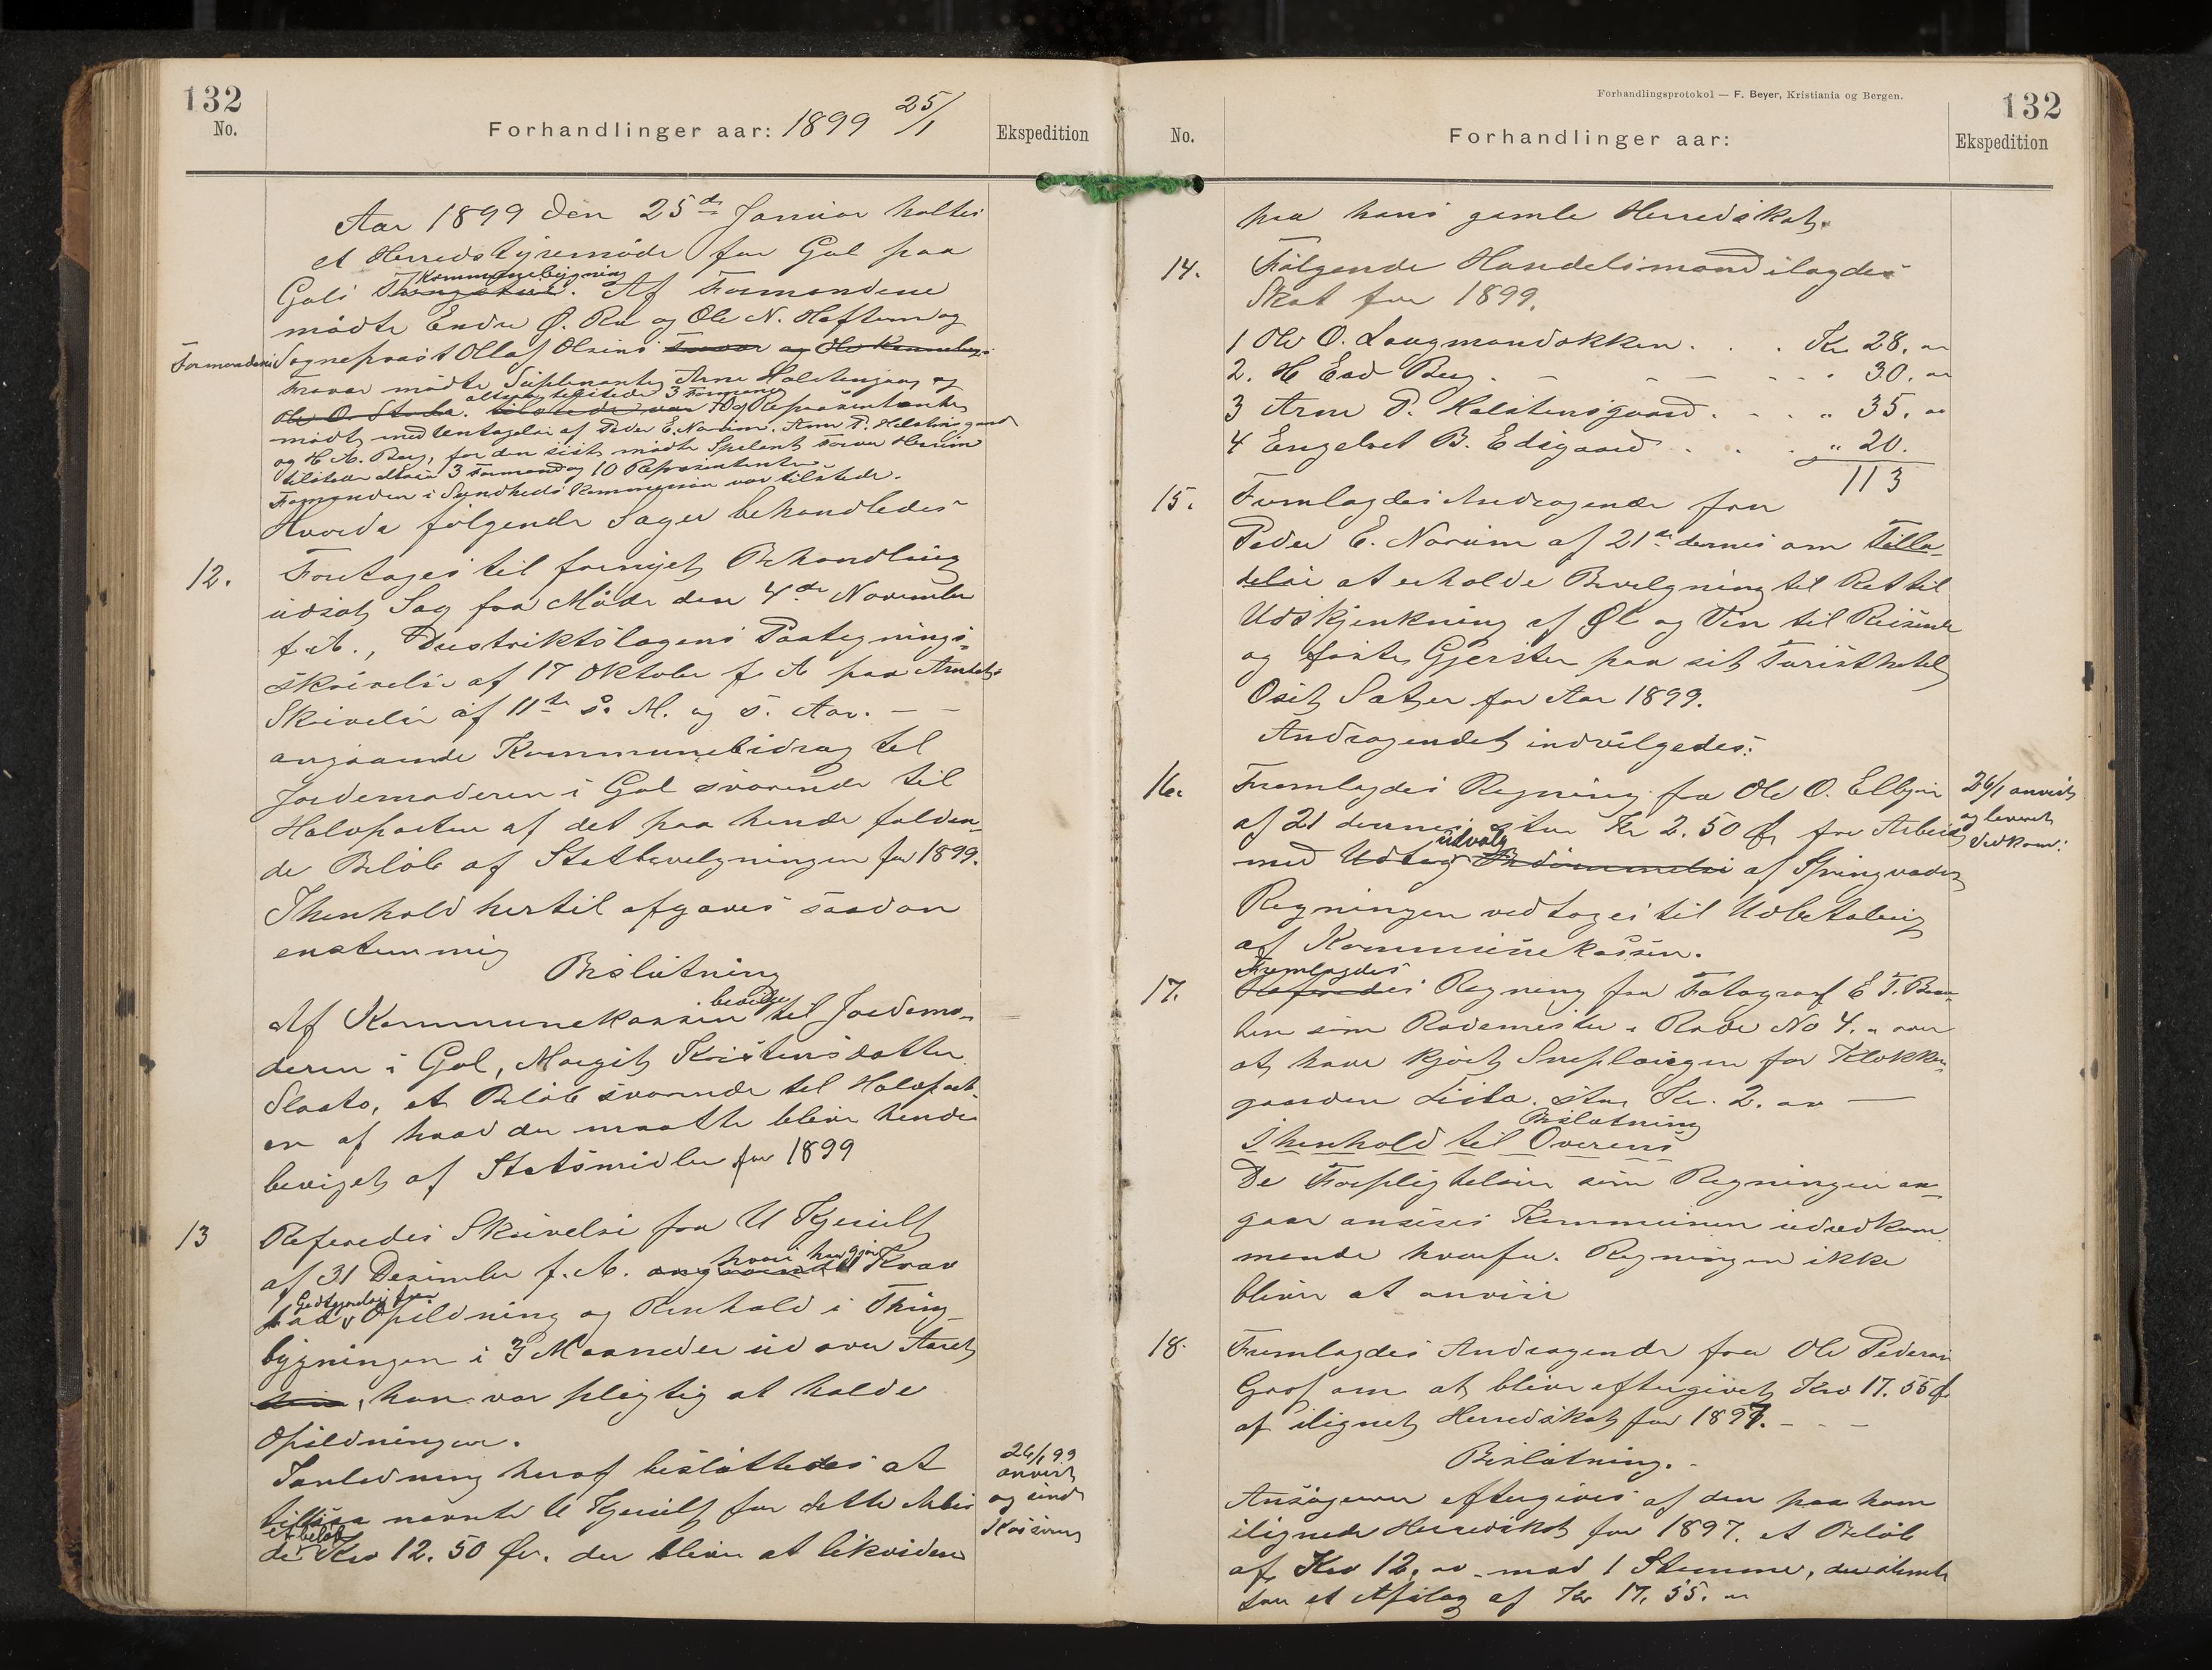 132
No.
Forhandlinger aar: 1899 25/1
Ekspedition
Aar 1899 den 25de Januar holtes
et Herredstyremøde for Gol paa
Gols Kommunebygning. Af Formendene
mødte Endre Ø. Ru og Ole N. Heftum og
Formandens Sogneprest Ollaf Olsens
Fravær mødte Suplenanten Arne Halstensgaar og
Ole O. Stake. altsaa tilstede 3 Formend
10 Repræsentanter
mødte med Untagelse af Peder E. Norum. Arne P. Helstensgaard
og H. A. Berg, for den sist mødte Suplent
tilstede altsaa 3 Formend og 10 Repræsentanter
Formanden i Sundheds Kommisjon var tilstede.
Hvorda følgende Sager behandledes
12. Foretages til fornyet Behandling
udsat Sag fra Møde den 4de November
f. A., Destriktslægens Paategnings-
skrivelse af 17 Oktober f A paa Amtets
Skrivelse af 11te s. M. og s. Aar. — —
angaaende Kommunebidrag til
Jordemoderen i Gol svarende til
Halvparten af det paa hende falden-
de Beløb af Statbevelgningen for 1899.
I henhold hertil afgaves saadan
enstemmig
Beslutning
Af Kommunekassen beviliges til Jordemo-
deren i Gol, Margit Kristensdatter
Slaato, et Beløb svarende til Halvpart-
en af hvad der maatte blive hende
beviget af Statsmidler for 1899
13 Referedes Skrivelse fra U Kjerulf
af 31 Desember f. A. hvori han gjør Krav
paa Godtgjørelse for Opildning og Renhold i Thing-
bygningen i 3 Maaneder ud over Aaret
, han var pligtig at holde
Opildningen.
I anledning heraf besluttedes at
tillsaa nævnte U Kjerulf for dette Arbei
de et beløb Kr 12.50 Ør. der blive at likvidere
26/1 99
anvist
og sendt
Kassereren
Forhandlingsprotokol — F. Beyer, Kristiania og Bergen.
132
No.
Forhandlinger aar:
Ekspedition
paa hans gamle Herredskat.
14. Følgende Handelsmænd ilagdes
Skat for 1899.
1 Ole O. Laugmandsokken . . . Kr 28. "
2. H Ead Berg . - - - - . 30. "
3 Arne P. Halstensgaard . - . " 35. "
4 Engebret B. Eidsgaard . . . " 20.
113
15. Fremlagdes Andragende fra
Peder E. Norum af 21de dennes om Tilla-
delse at erholde Bevelgning til Ret til
Udskjenkning af Øl og Vin til Reisende
og faste Gjester paa sit Turisthotel
Oset Sæter for Aar 1899.
Andragendet indvilgedes.
16. Fremlagdes Regning fra Ole O. Elbjør
af 21 dennes stor Kr 2.50 Ø for Arbeide
med Udtag udvalg af Springvader
Regningen vedtoges til Udbetaling
af Kommunekassen.
26/1 anvist
og leveret
Vedkom:
17. Fremlagdes Regning fra Fotograf E T. Bra-
ten som Rodemester i Rode No 4. " over
at have kjørt Sneplougen for Klokker-
gaarden Lisla. stor Kr. 2. " —
Beslutning
I henhold til Overens
De Forpligtelser som Regningen an-
gaar ansees Kommunen uvedkom
mende hvorfor Regningen ikke
bliver at anvise
18. Fremlagdes Andragende fra Ole Pedersen
Grøf om at blive eftergivet Kr 17.55 Ø
af ilignet Herredskat for 1897. - - -
Beslutning. -
Ansøgeren eftergives af den paa ham
ilignede Herredskat for 1897. et Beløb
af Kr 12. " - mod 1 Stemme, der stemte
for et Afslag af Kr 17.55. "